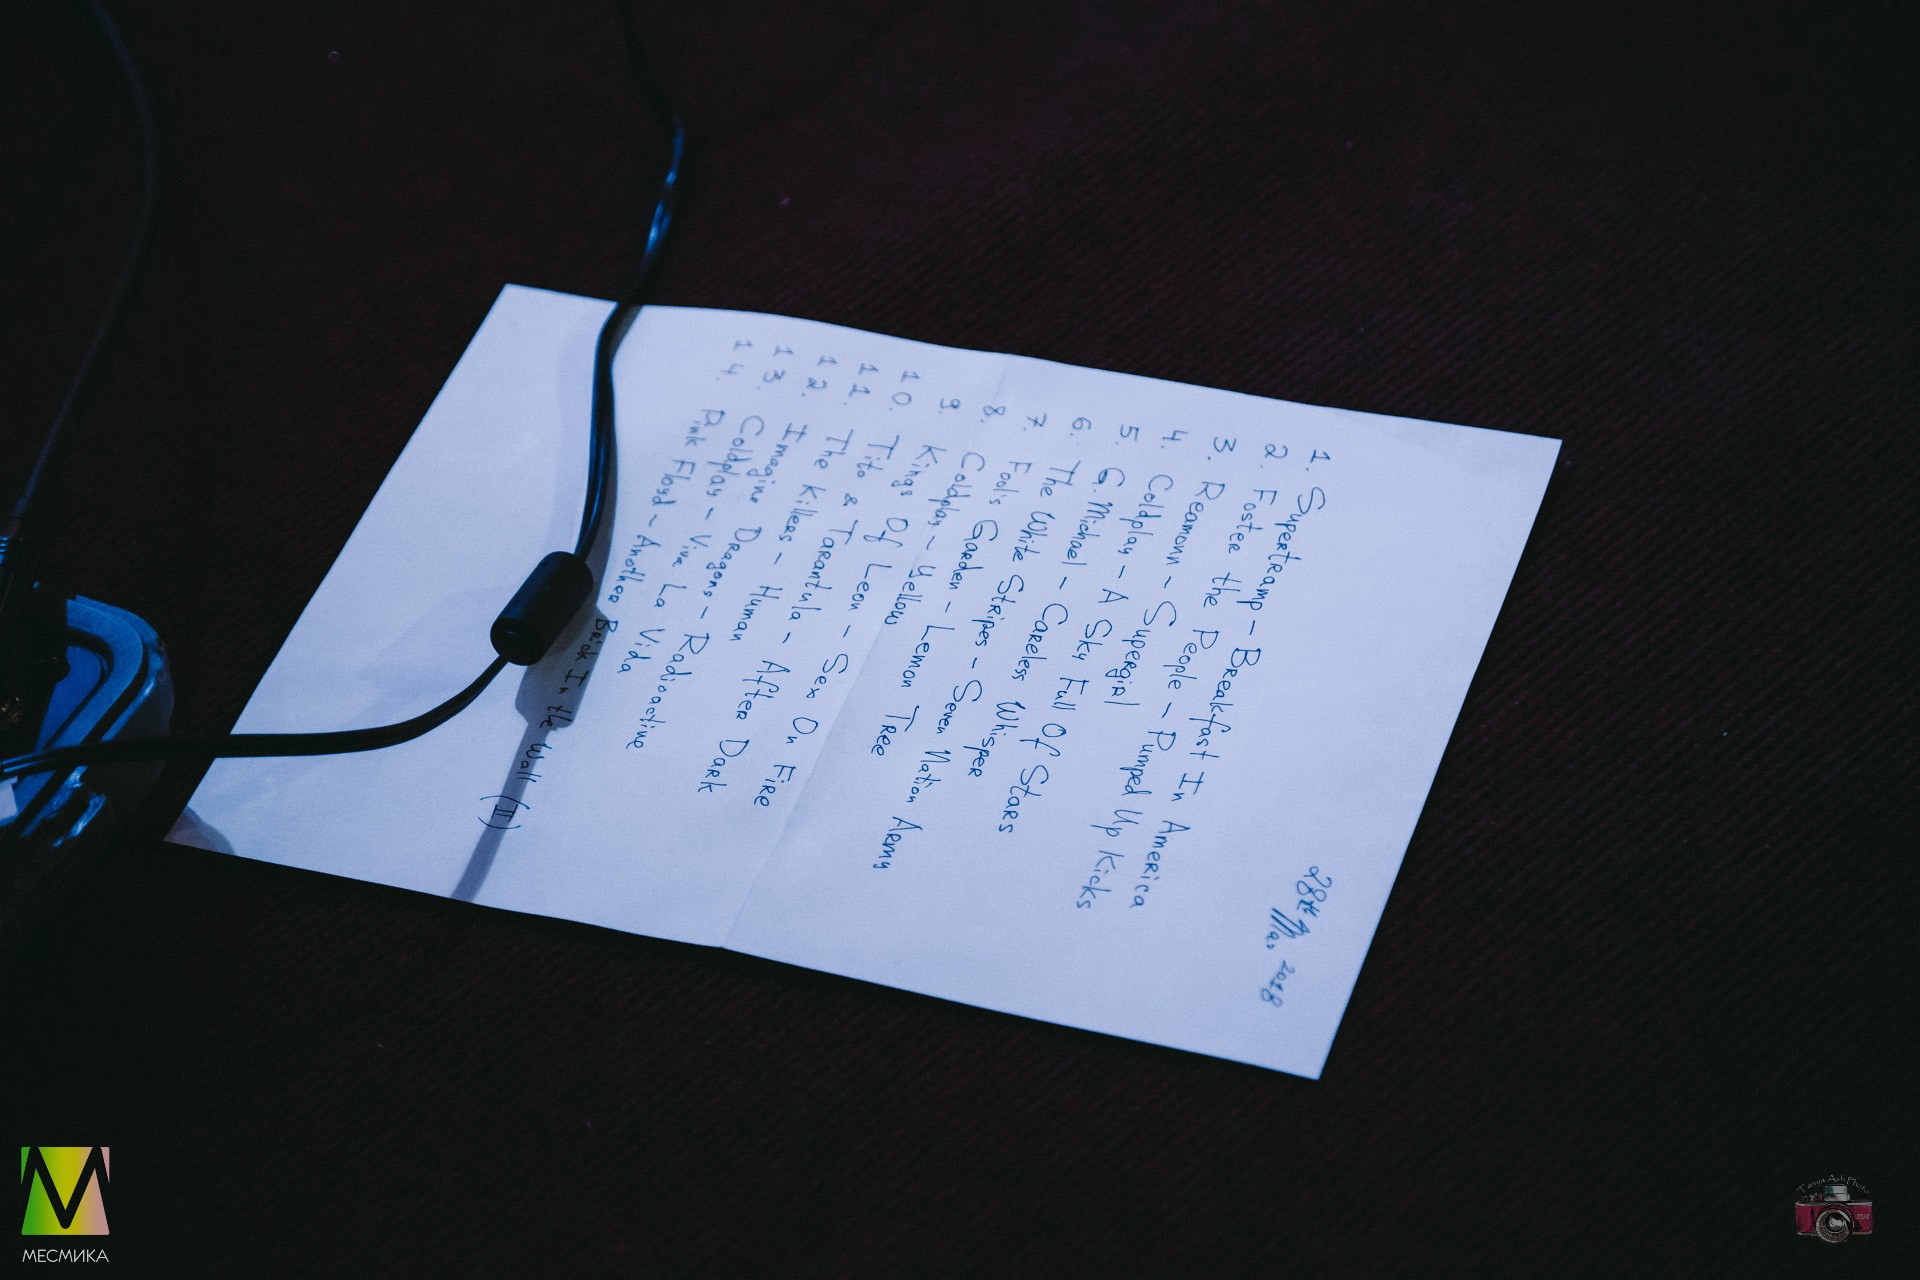 28th Mar 2018
1. Supertramp - Breakfast In America
2. Foster the People - Pumped Up Kicks
3. Reamonn - Supergirl
4. Coldplay - A Sky Full Of Stars
5. G. Michael - Careless Whisper
6. The White Stripes - Seven Nation Army
7. Fool's Garden - Lemon Tree
8. Coldplay - Yellow
9. Kings Of Leon - Sex On Fire
10. Tito & Tarantula - After Dark
11. The Killers - Human
12. Imagine Dragons - Radioactive
13. Coldplay - Viva La Vida
14. Pink Floyd - Another Brick In the Wall (II)
МЕСМИКА
Tanya Ash Photo